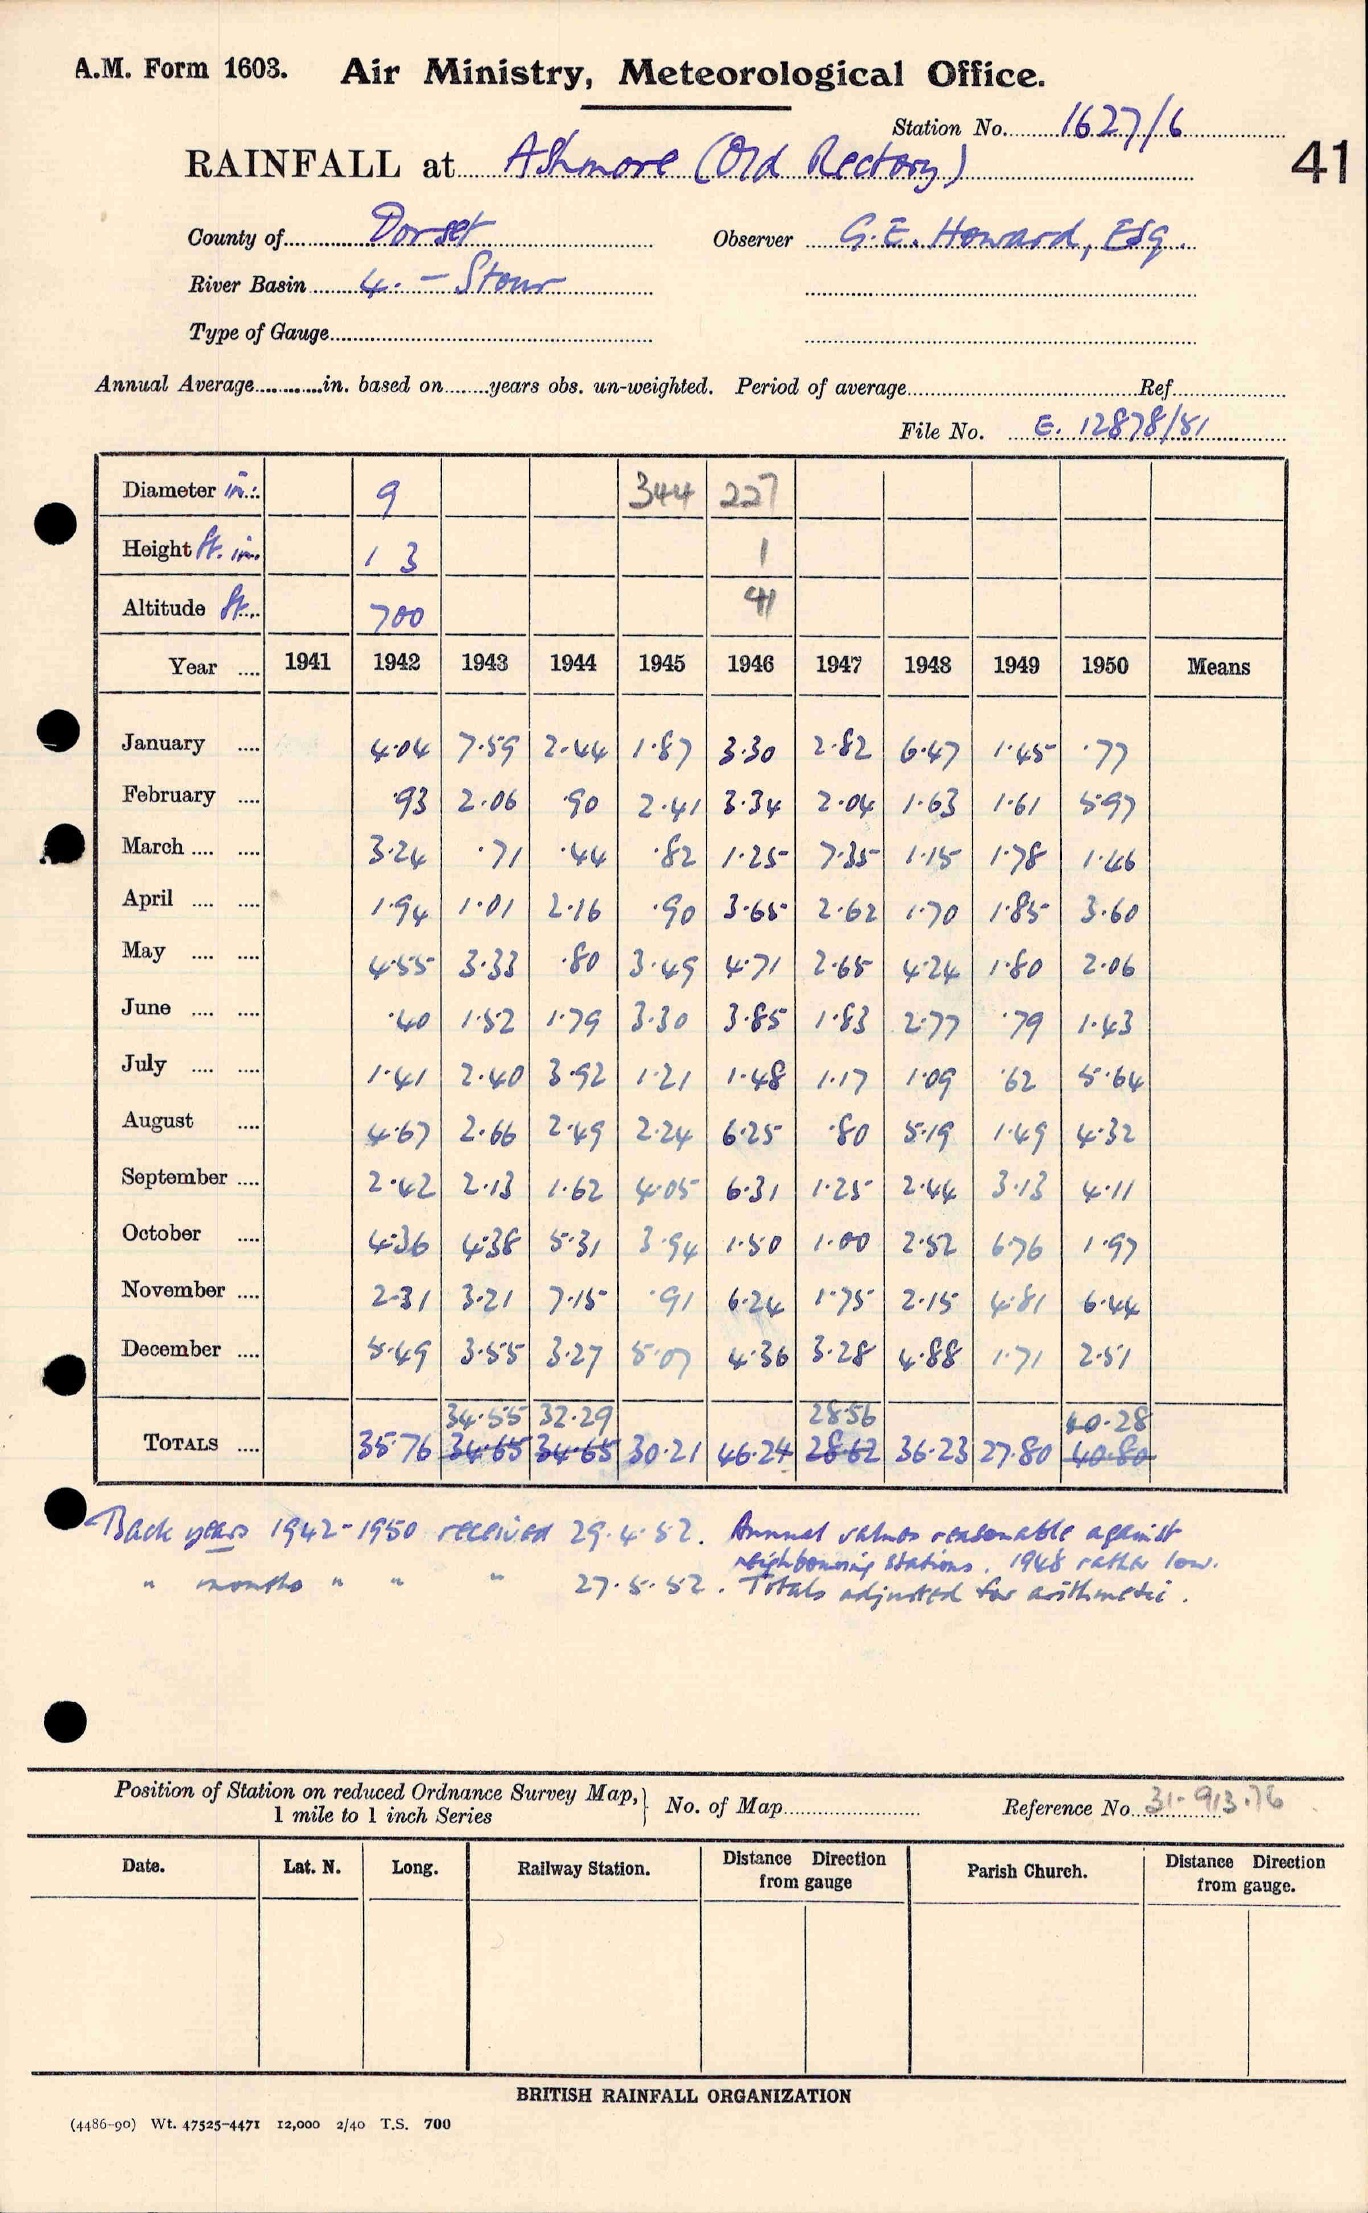 A.M. Form 1603. Air Ministry, Meteorological Office.
Station No. 1627/6
41
RAINFALL at Ashmore (Old Rectory)
County of Dorset Observer G.E. Howard, Esq.
River Basin 4. - Stour
Type of Gauge
Annual Average in. based on years obs. un-weighted. Period of average Ref
File No. E. 12878/51
Diameter in. 9 344 227
Height ft. in. 1 3 1
Altitude ft. 700 41
Year 1941 1942 1943 1944 1945 1946 1947 1948 1949 1950 Means
January 4.04 7.59 2.44 1.87 3.30 2.82 6.47 1.45 .77
February .93 2.06 .90 2.41 3.34 2.04 1.63 1.61 5.97
March 3.24 .71 .44 .82 1.25 7.35 1.15 1.78 1.46
April 1.94 1.01 2.16 .90 3.65 2.62 1.70 1.85 3.60
May 4.55 3.33 .80 3.49 4.71 2.65 4.24 1.80 2.06
June .40 1.52 1.79 3.30 3.85 1.83 2.77 .79 1.43
July 1.41 2.40 3.92 1.21 1.48 1.17 1.09 .62 5.64
August 4.67 2.66 2.49 2.24 6.25 .80 5.19 1.49 4.32
September 2.42 2.13 1.62 4.05 6.31 1.25 2.44 3.13 4.11
October 4.36 4.38 5.31 3.94 1.50 1.00 2.52 6.76 1.97
November 2.31 3.21 7.15 .91 6.24 1.75 2.15 4.81 6.44
December 5.49 3.55 3.27 5.07 4.36 3.28 4.88 1.71 2.51
34.55 32.29 28.56 40.28
TOTALS 35.76 34.65 34.65 30.21 46.24 28.62 36.23 27.80 40.80
Back years 1942-1950 received 29.4.52. Annual values reasonable against
neighbouring stations. 1948 rather low.
" months " " " 27.5.52. Totals adjusted for arithmetic.
Position of Station on reduced Ordnance Survey Map,
1 mile to 1 inch Series
No. of Map Reference No. 31-913.76
Date. Lat. N. Long. Railway Station. Distance Direction from gauge Parish Church. Distance Direction from gauge.
BRITISH RAINFALL ORGANIZATION
(4486-90) Wt. 47525-4471 12,000 2/40 T.S. 700